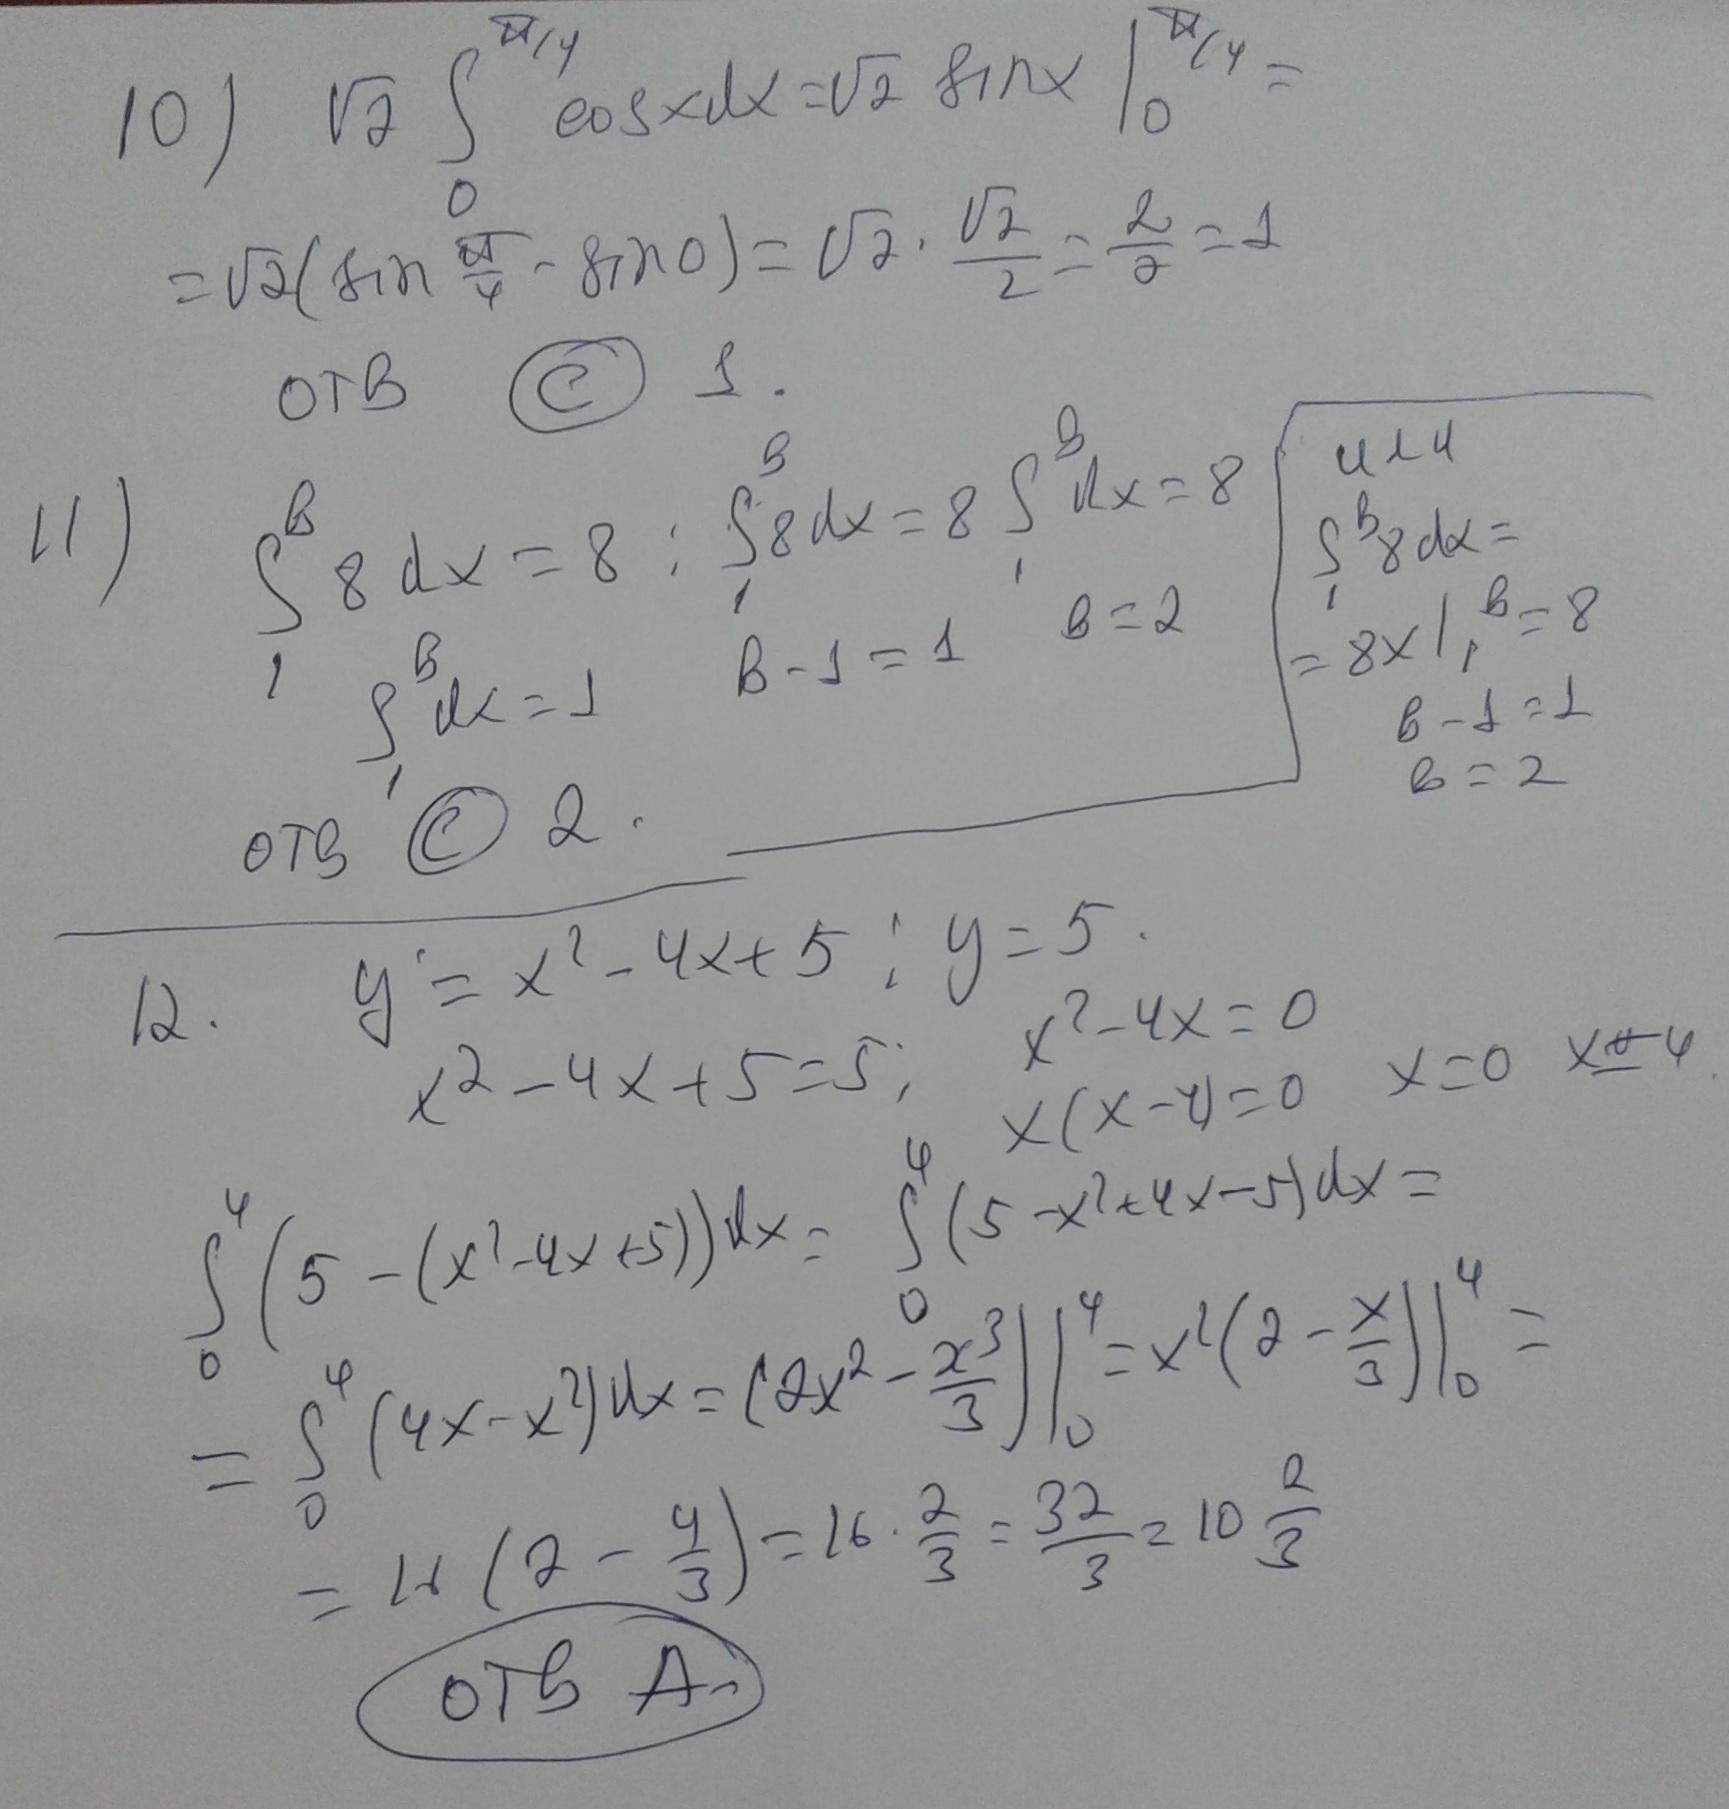 10) √2 ∫₀^π/4 cosxdx = √2 sinx |₀^π/4 =
= √2(sin π/4 - sin0) = √2 · √2/2 = 2/2 = 1
ОТВ С 1.
11) ∫₁^В 8dx = 8 ; ∫₁^В 8dx = 8 ∫₁^В dx = 8
∫₁^В dx = 1 В - 1 = 1 В = 2
ОТВ С 2.
или
∫₁^В 8dx =
= 8x |₁^В = 8
В - 1 = 1
В = 2
12. y = x² - 4x + 5 ; y = 5.
x² - 4x + 5 = 5; x² - 4x = 0
x(x - 4) = 0 x = 0 x = 4.
∫₀⁴ (5 - (x² - 4x + 5))dx = ∫₀⁴ (5 - x² + 4x - 5)dx =
= ∫₀⁴ (4x - x²)dx = (2x² - x³/3) |₀⁴ = x²(2 - x/3) |₀⁴ =
= 16 (2 - 4/3) = 16 · 2/3 = 32/3 = 10 2/3
ОТВ А.